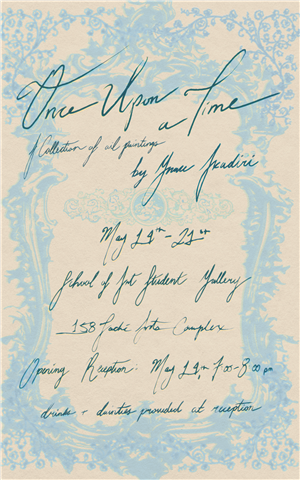 Once Upon
a Time
A Collection of oil paintings
by
May 19th - 21st
School of Art Student Gallery
158 Arts Complex
Opening Reception: May 19th, 7:00-8:00 pm
drinks + dainties provided at reception